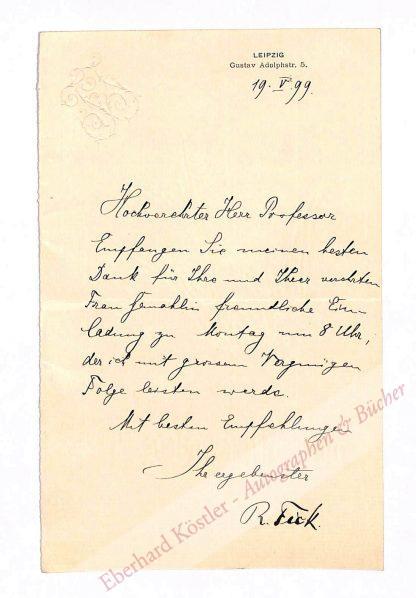 LEIPZIG
Gustav Adolphstr. 5.
19. V. 99.
Hochverehrter Herr Professor
Empfangen Sie meinen besten
Dank für Ihre und Ihrer verehrten
Frau Gemahlin freundliche Ein
ladung zu Montag um 8 Uhr,
der ich mit grossem Vergnügen
Folge leisten werde.
Mit besten Empfehlungen
Ihr ergebenster
R. Fick.
Eberhard Köstler - Autographen & Bücher